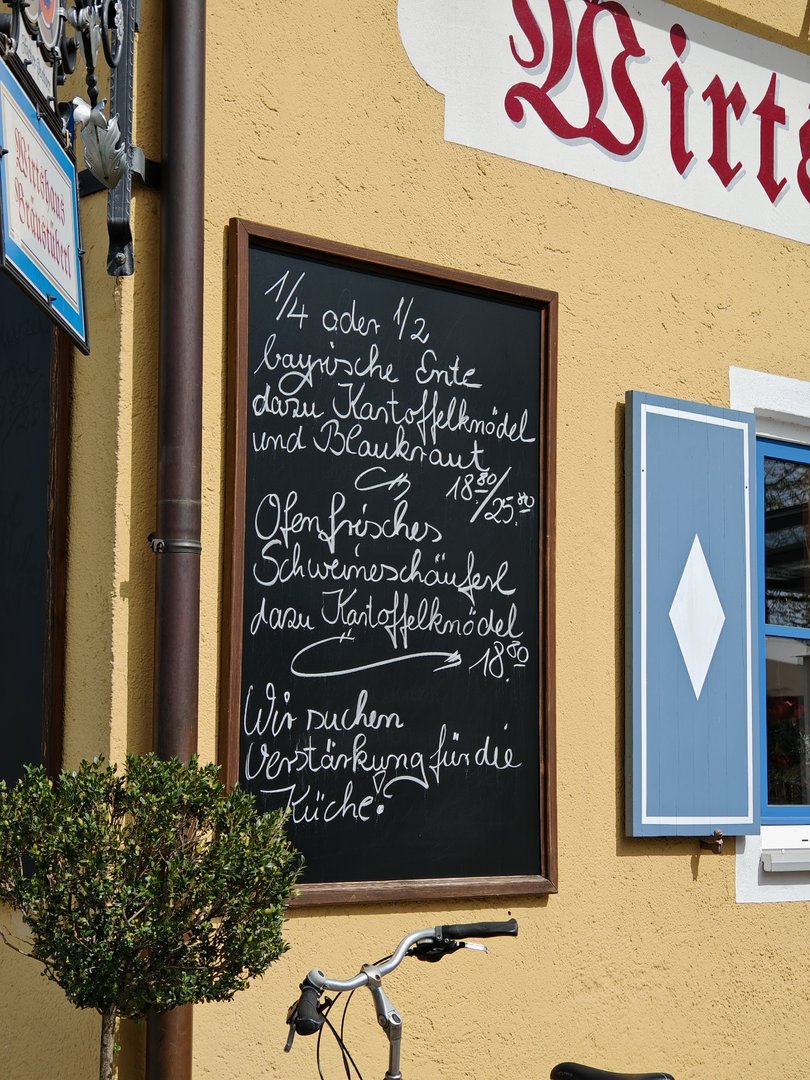 Wirtshaus
Bräustüberl
Wirts
1/4 oder 1/2
bayrische Ente
dazu Kartoffelknödel
und Blaukraut
18.80/25.80
Ofenfrisches
Schweineschäuferl
dazu Kartoffelknödel
18.80
Wir suchen
Verstärkung für die
Küche!